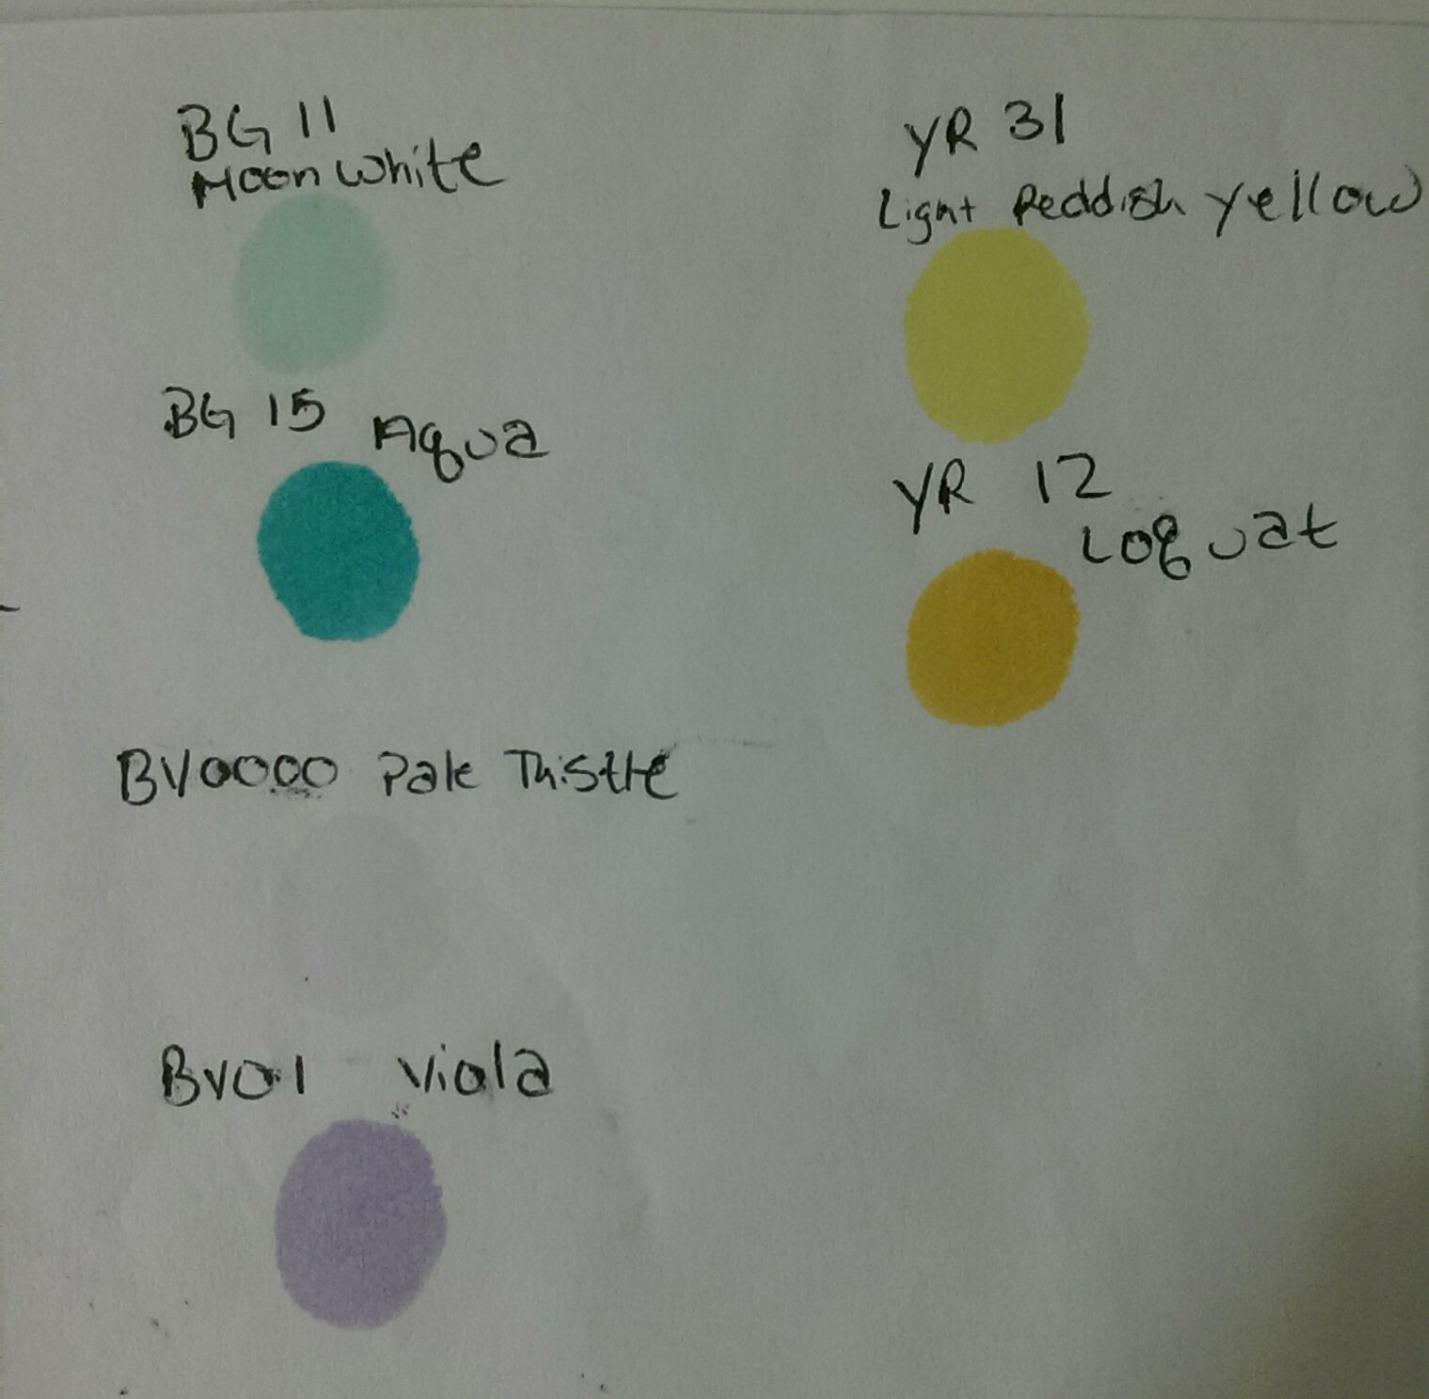 BG 11
Moon White
BG 15 Aqua
BV0000 Pale Thistle
BV01 Viola
YR 31
Light Reddish Yellow
YR 12
Loquat